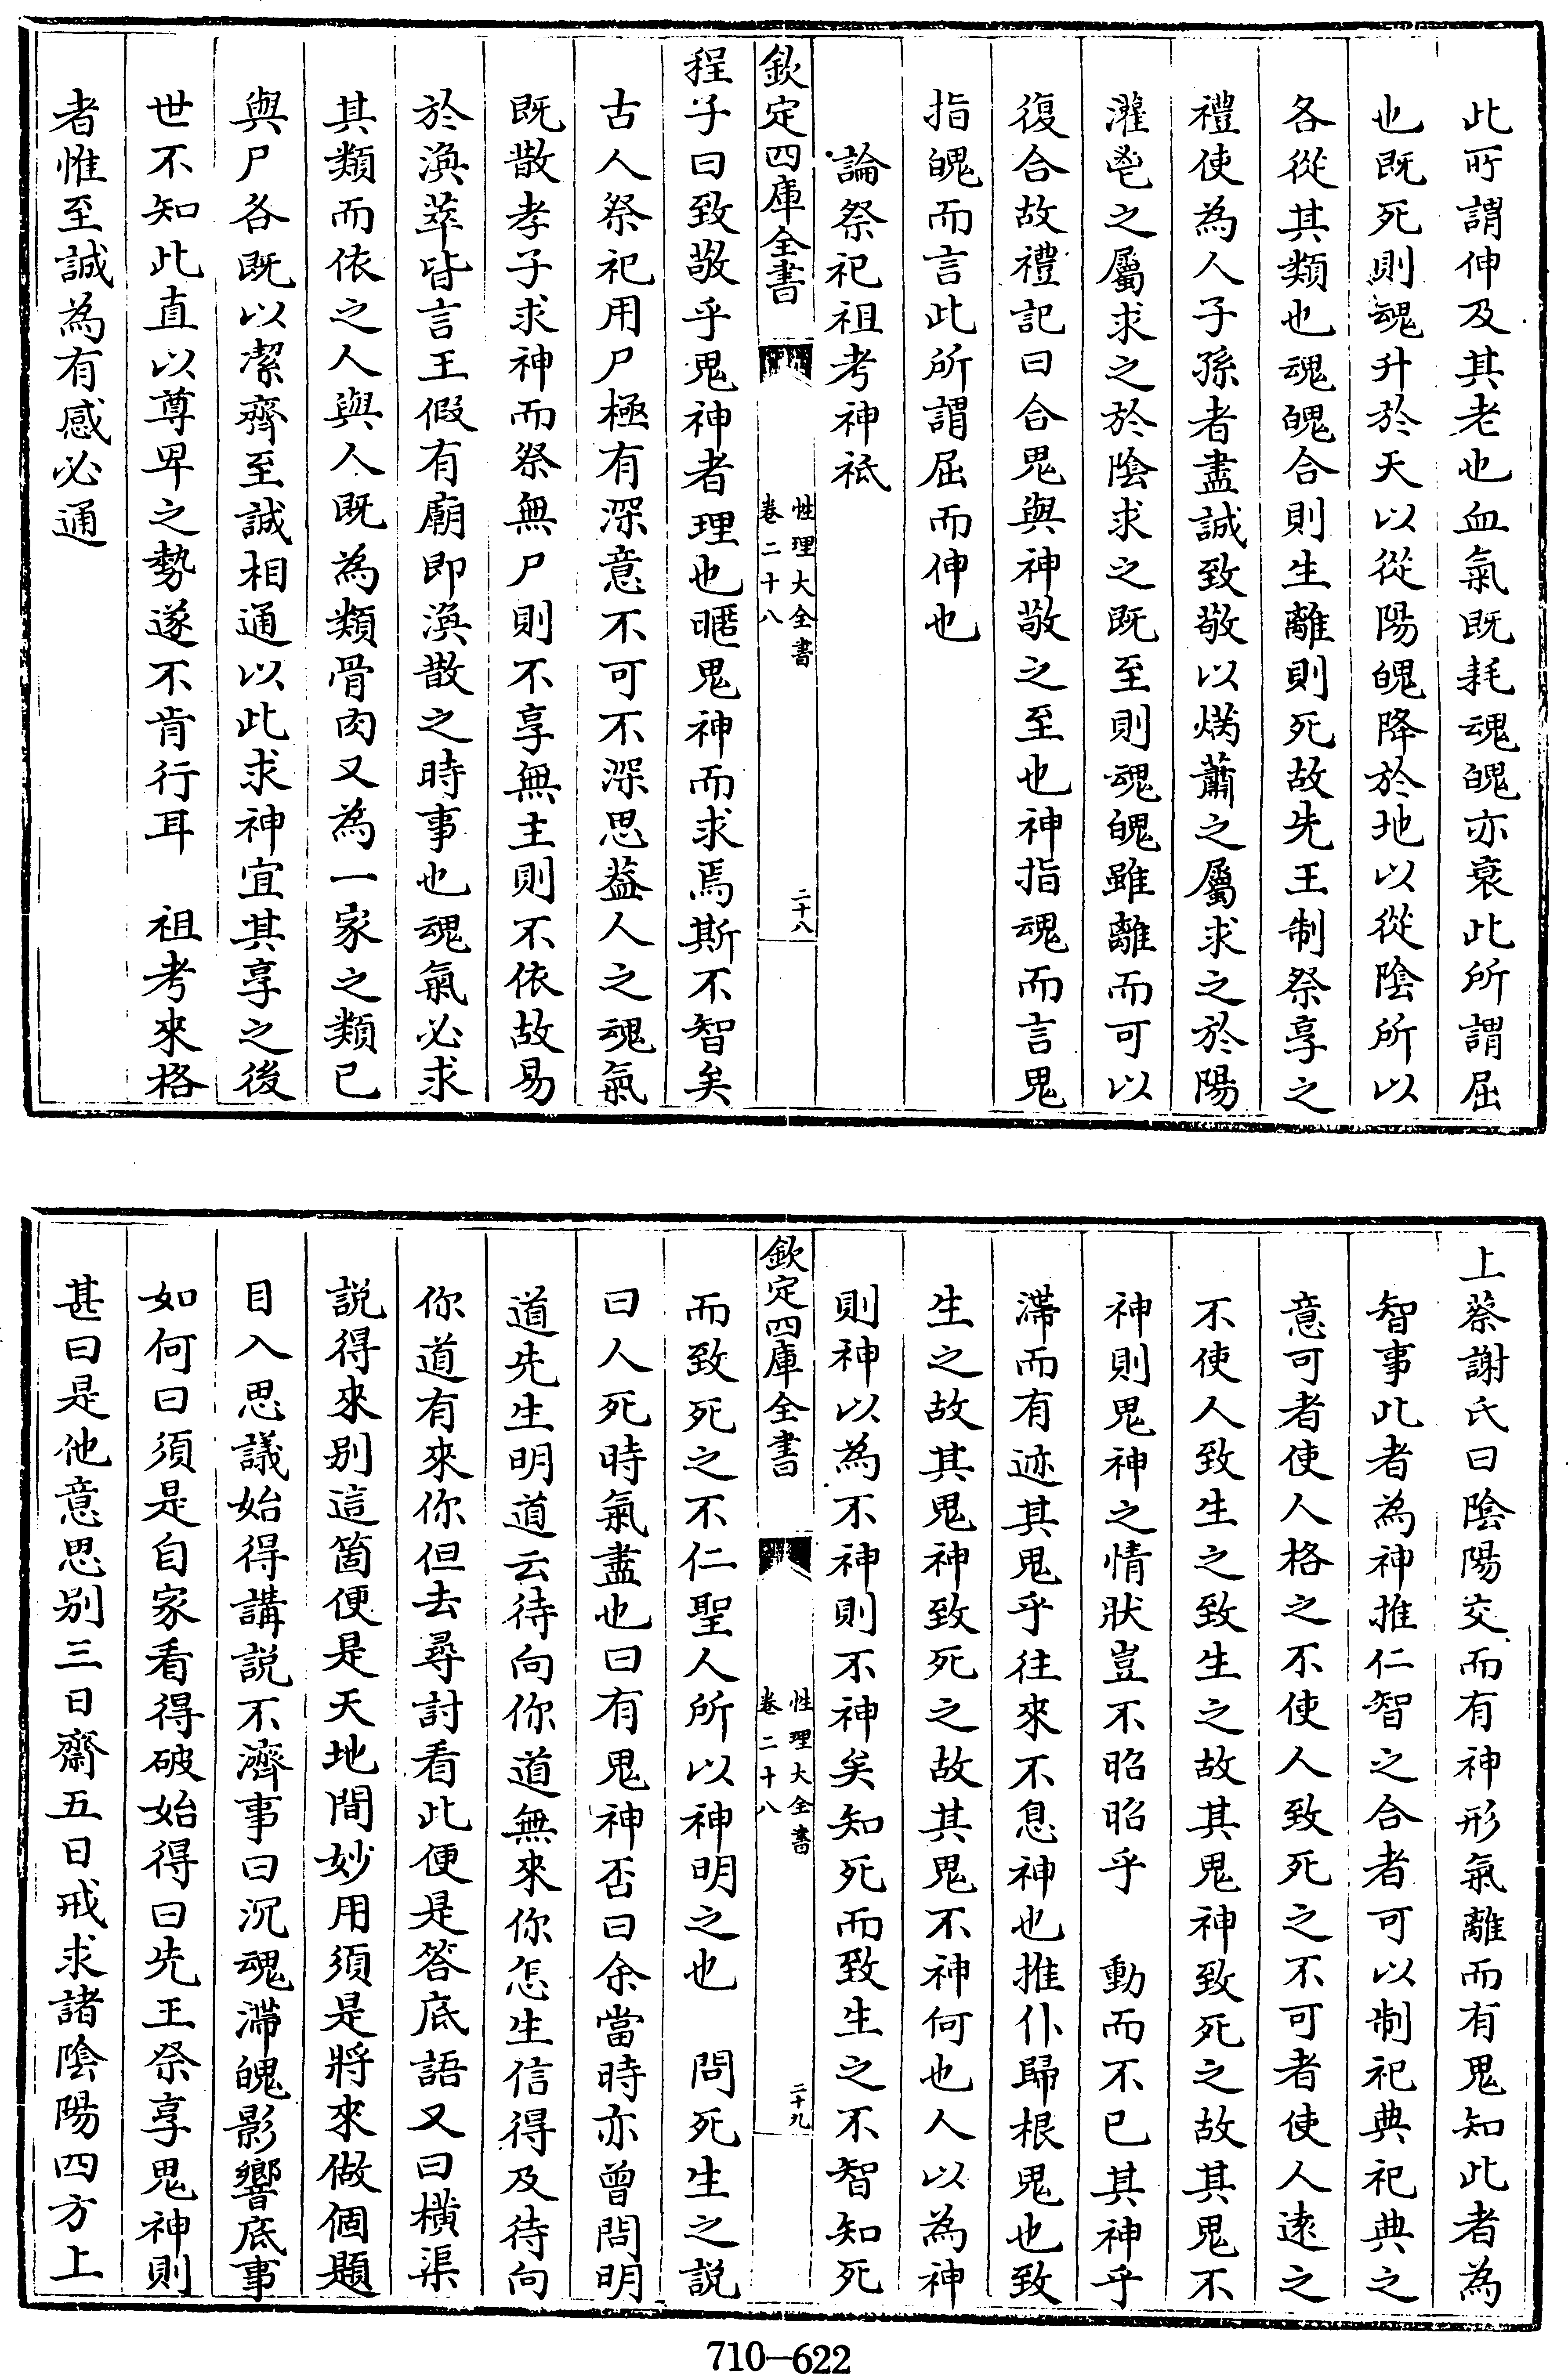 此所謂伸及其老也血氣既耗魂魄亦衰此所謂屈
也既死則魂升於天以從陽魄降於地以從陰所以
各從其類也魂魄合則生離則死故先王制祭享之
禮使為人子孫者盡誠致敬以焫蕭之屬求之於陽
灌鬯之屬求之於陰求之既至則魂魄雖離而可以
復合故禮記曰合鬼與神敬之至也神指魂而言鬼
指魄而言此所謂屈而伸也
論祭祀祖考神祗
欽定四庫全書
性理大全書
卷二十八
二十八
程子曰致敬乎鬼神者理也暱鬼神而求焉斯不智矣
古人祭祀用尸極有深意不可不深思葢人之魂氣
既散孝子求神而祭無尸則不享無主則不依故易
於渙萃皆言王假有廟即渙散之時事也魂氣必求
其類而依之人與人既為類骨肉又為一家之類已
與尸各既以潔齊至誠相通以此求神宜其享之後
世不知此直以尊卑之勢遂不肯行耳　祖考來格
者惟至誠為有感必通
上蔡謝氏曰陰陽交而有神形氣離而有鬼知此者為
智事此者為神推仁智之合者可以制祀典祀典之
意可者使人格之不使人致死之不可者使人逺之
不使人致生之致生之故其鬼神致死之故其鬼不
神則鬼神之情狀豈不昭昭乎　動而不已其神乎
滯而有迹其鬼乎往來不息神也推仆歸根鬼也致
生之故其鬼神致死之故其鬼不神何也人以為神
則神以為不神則不神矣知死而致生之不智知死
欽定四庫全書
性理大全書
卷二十八
二十九
而致死之不仁聖人所以神明之也　問死生之説
曰人死時氣盡也曰有鬼神否曰余當時亦曾問明
道先生明道云待向你道無來你怎生信得及待向
你道有來你但去尋討看此便是答底語又曰橫渠
説得來别這箇便是天地間妙用須是將來做個題
目入思議始得講説不濟事曰沉魂滯魄影響底事
如何曰須是自家看得破始得曰先王祭享鬼神則
甚曰是他意思别三日齋五日戒求諸陰陽四方上
710-622